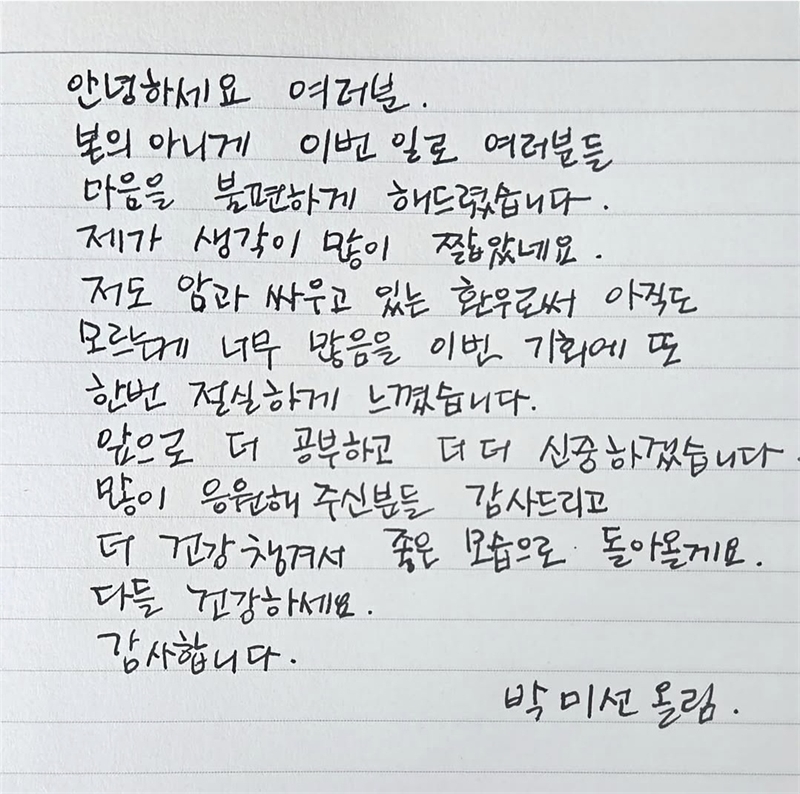 안녕하세요 여러분.
본의 아니게 이번 일로 여러분들
마음을 불편하게 해드렸습니다.
제가 생각이 많이 짧았네요.
저도 암과 싸우고 있는 환우로써 아직도
모르는게 너무 많음을 이번 기회에 또
한번 절실하게 느꼈습니다.
앞으로 더 공부하고 더 더 신중하겠습니다.
많이 응원해 주신분들 감사드리고
더 건강 챙겨서 좋은 모습으로 돌아올게요.
다들 건강하세요.
감사합니다.
박미선 올림.